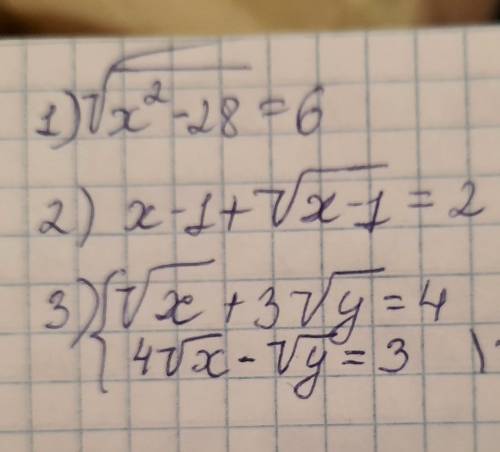 1) √(x² - 28) = 6
2) x - 1 + √(x - 1) = 2
3) { √x + 3√y = 4
4√x - √y = 3